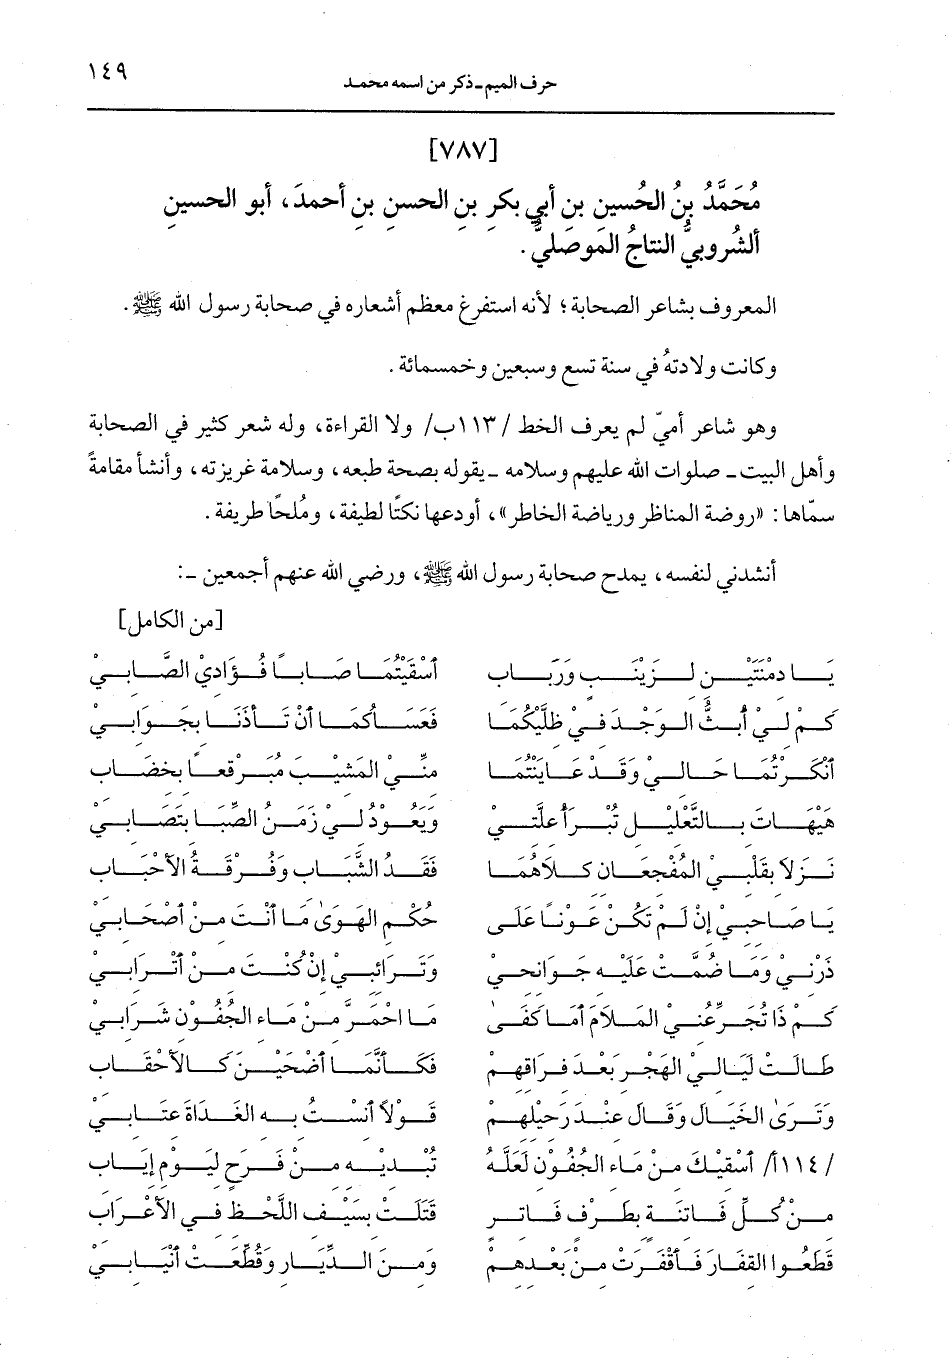 حرف الميم ـ ذكر من اسمه محمد
١٤٩
[٧٨٧]
مُحَمَّدُ بنُ الحُسينِ بنِ أبي بكرِ بنِ الحسنِ بنِ أحمدَ، أبو الحسينِ
ألشُروبيُّ النتاجُ المَوصليُّ.
المعروف بشاعر الصحابة؛ لأنه استفرغ معظم أشعاره في صحابة رسول الله ﷺ.
وكانت ولادتهُ في سنة تسع وسبعين وخمسمائة.
وهو شاعر أميّ لم يعرف الخط /١١٣ب/ ولا القراءة، وله شعر كثير في الصحابة
وأهل البيت ـ صلوات الله عليهم وسلامه ـ يقوله بصحة طبعه، وسلامة غريزته، وأنشأ مقامةً
سمّاها: «روضة المناظر ورياضة الخاطر»، أودعها نكتًا لطيفة، ومُلحًا طريفة.
أنشدني لنفسه، يمدح صحابة رسول الله ﷺ، ورضي الله عنهم أجمعين ـ:
[من الكامل]
يَا دِمْنَتَيْنِ لِزَيْنَبٍ وَرَبَابِ أَسْقَيْتُمَا صَابًا فُؤَادِيْ الصَّابِيْ
كَمْ لِيْ أَبُثُّ الوَجْدَ فِيْ ظِلَّيْكُمَا فَعَسَاكُمَا أَنْ تَأْذَنَا بِجَوَابِيْ
أَنْكَرْتُمَا حَالِيْ وَقَدْ عَايَنْتُمَا مِنِّيْ المَشِيْبَ مُبَرْقَعًا بِخِضَابِ
هَيْهَاتَ بِالتَّعْلِيْلِ تُبْرَأُ عِلَّتِيْ وَيَعُوْدُ لِيْ زَمَنُ الصِّبَا بِتَصَابِيْ
نَزَلَا بِقَلْبِيْ المُفْجِعَانِ كِلَاهُمَا فَقْدُ الشَّبَابِ وَفُرْقَةُ الأَحْبَابِ
يَا صَاحِبِيْ إِنْ لَمْ تَكُنْ عَوْنًا عَلَى حُكْمِ الهَوَىٰ مَا أَنْتَ مِنْ أَصْحَابِيْ
ذَرْنِيْ وَمَا ضُمَّتْ عَلَيْهِ جَوَانِحِيْ وَتَرَائِبِيْ إِنْ كُنْتَ مِنْ أَتْرَابِيْ
كَمْ ذَا تُجَرِّعُنِيْ المَلَامَ أَمَا كَفَىٰ مَا احْمَرَّ مِنْ مَاءِ الجُفُوْنِ شَرَابِيْ
طَالَتْ لَيَالِيْ الهَجْرِ بَعْدَ فِرَاقِهِمْ فَكَأَنَّمَا أَضْحَيْنَ كَالأَحْقَابِ
وَتَرَىٰ الخَيَالَ وَقَالَ عِنْدَ رَحِيْلِهِمْ قَوْلًا أَنِسْتُ بِهِ الغَدَاةَ عِتَابِيْ
/١١٤أ/ أَسْقِيْكَ مِنْ مَاءِ الجُفُوْنِ لَعَلَّهُ تُبْدِيْهِ مِنْ فَرَحٍ لِيَوْمِ إِيَابِ
مِنْ كُلِّ فَاتِنَةٍ بِطَرْفٍ فَاتِرٍ قَتَلَتْ بِسَيْفِ اللَّحْظِ فِي الأَعْرَابِ
قَطَعُوا القِفَارَ فَأَقْفَرَتْ مِنْ بَعْدِهِمْ وَمِنَ الدِّيَارِ وَقُطِّعَتْ أَنْيَابِيْ